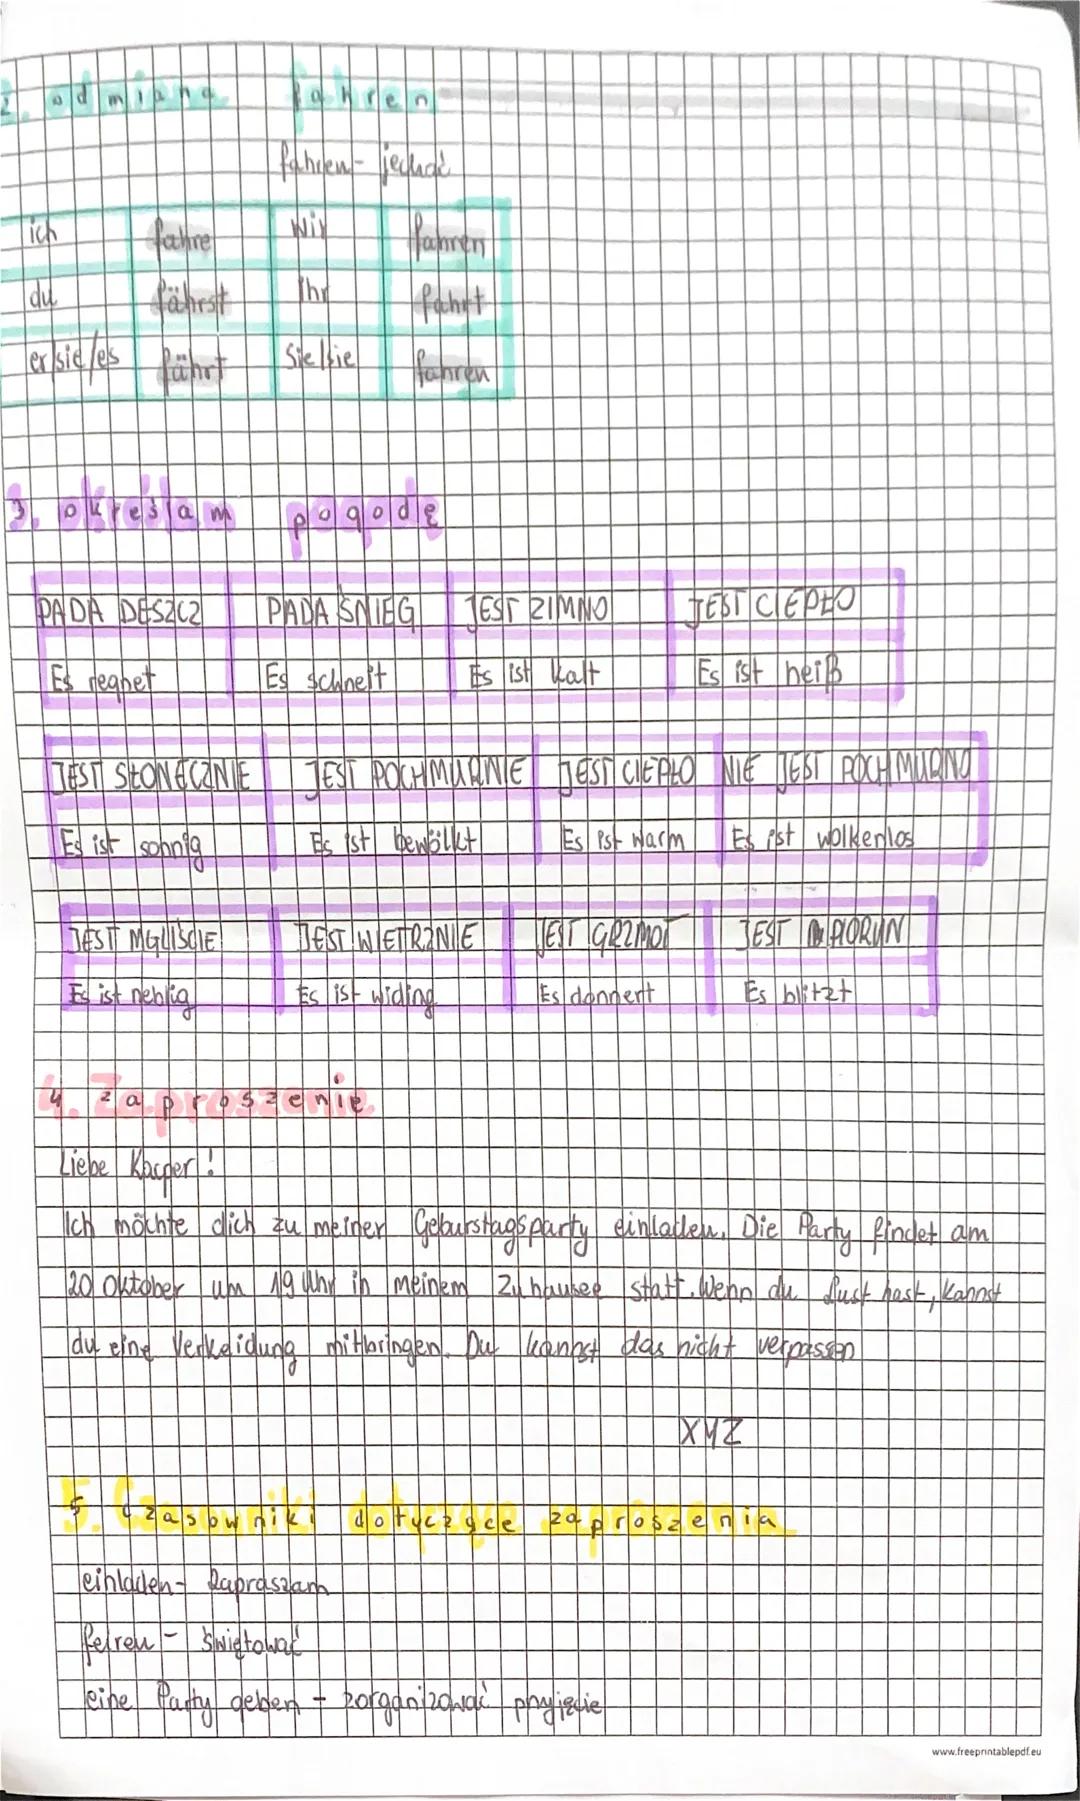 2. odmiana fahren
fahren - jechać
ich fahre Wir fahren
du fährst Ihr fahrt
er/sie/es fährt Sie/sie fahren
3. określam pogodę
PADA DESZCZ PADA ŚNIEG JEST ZIMNO JEST CIEPŁO
Es regnet Es schneit Es ist kalt Es ist heiß
JEST SŁONECZNIE JEST POCHMURNIE JEST CIEPŁO NIE JEST POCHMURNO
Es ist sonnig Es ist bewölkt Es ist warm Es ist wolkenlos
JEST MGLIŚCIE JEST WIETRZNIE JEST GRZMOT JEST PIORUN
Es ist neblig Es ist widing Es donnert Es blitzt
4. Zaproszenie
Liebe Kacper!
Ich möchte dich zu meiner Geburstagsparty einladen. Die Party findet am
20 Oktober um 19 Uhr in meinem Zuhausee statt. Wenn du Lust hast, kannst
du eine Verkeidung mitbringen. Du kannst das nicht verpassen
XYZ
5. Czasowniki dotyczące zaproszenia
einladen - Zapraszam
feiren - świętować
eine Party geben - zorganizować przyjęcie
www.freeprintablepdf.eu